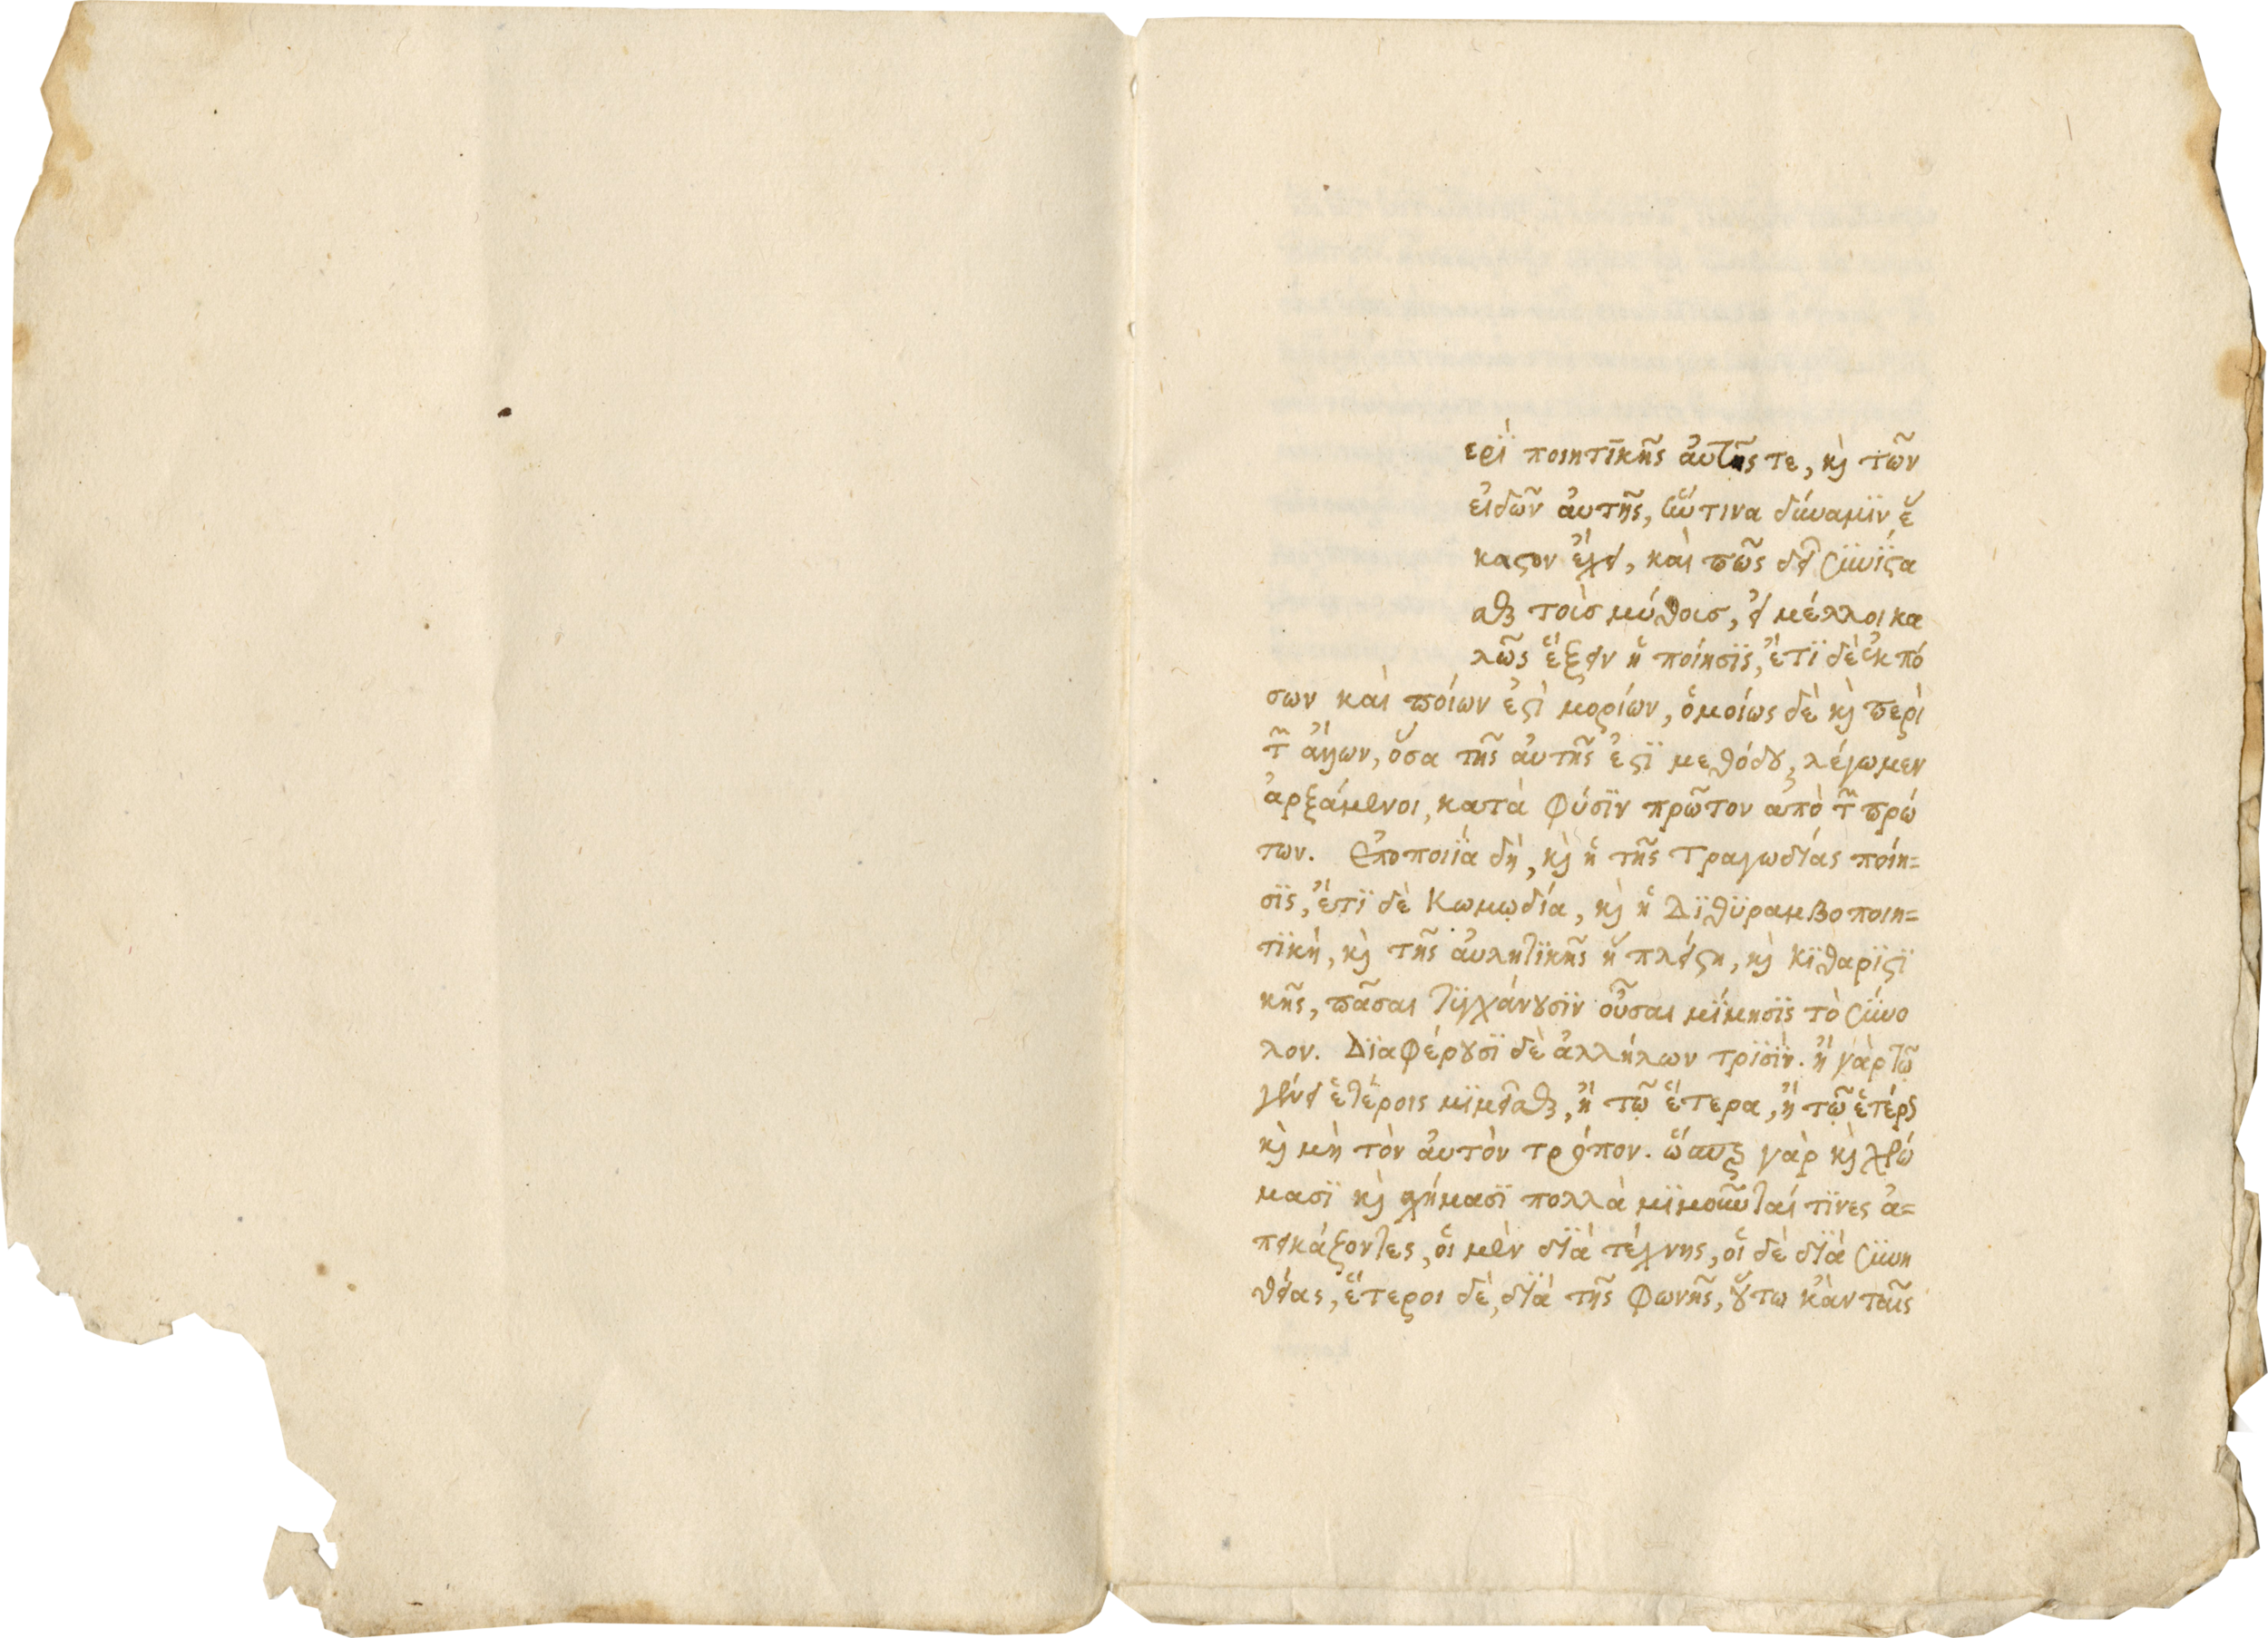 ερὶ ποιητικῆς ἀυτῆς τε, κὶ τῶν
ἐιδῶν ἀυτῆς, ἥντινα δύναμιν ἕ
καστον ἔχει, καὶ πῶς δεῖ συνίστα
σθαι τοὶσ μύθοισ, εἰ μέλλοι κα
λῶς ἕξειν ἡ ποίησις, ἔτι δὲ ἐκ πό
σων καὶ ποίων ἐστὶ μορίων, ὁμοίως δὲ κὶ περὶ
τῶν ἄλλων, ὅσα τῆς ἀυτῆς ἐστι μεθόδου, λέγωμεν
ἀρξάμενοι, κατὰ φύσιν πρῶτον ἀπὸ τῶν πρώ
των. Ἐποποιία δὴ, κὶ ἡ τῆς Τραγωδίας ποίη=
σις, ἔτι δὲ Κωμῳδία, κὶ ἡ Διθυραμβοποιη=
τικὴ, κὶ τῆς ἀυλητικῆς ἡ πλείστη, κὶ Κιθαριστι
κῆς, πᾶσαι τυγχάνουσιν οὖσαι μίμησις τὸ σύνο
λον. Διαφέρουσι δὲ ἀλλήλων τρισὶν. ἢ γὰρ τῷ
γένει ἑτέροις μιμεῖσθαι, ἢ τῷ ἕτερα, ἢ τῷ ἑτέρως
κὶ μὴ τὸν ἀυτὸν τρόπον. ὥσπερ γὰρ κὶ χρώ
μασι κὶ σχήμασι πολλὰ μιμοῦνταί τινες ἀ=
πεικάζοντες, ὁι μὲν διὰ τέχνης, ὁι δὲ διὰ συνη
θείας, ἕτεροι δὲ, διὰ τῆς φωνῆς, οὕτω κἀν ταῖς